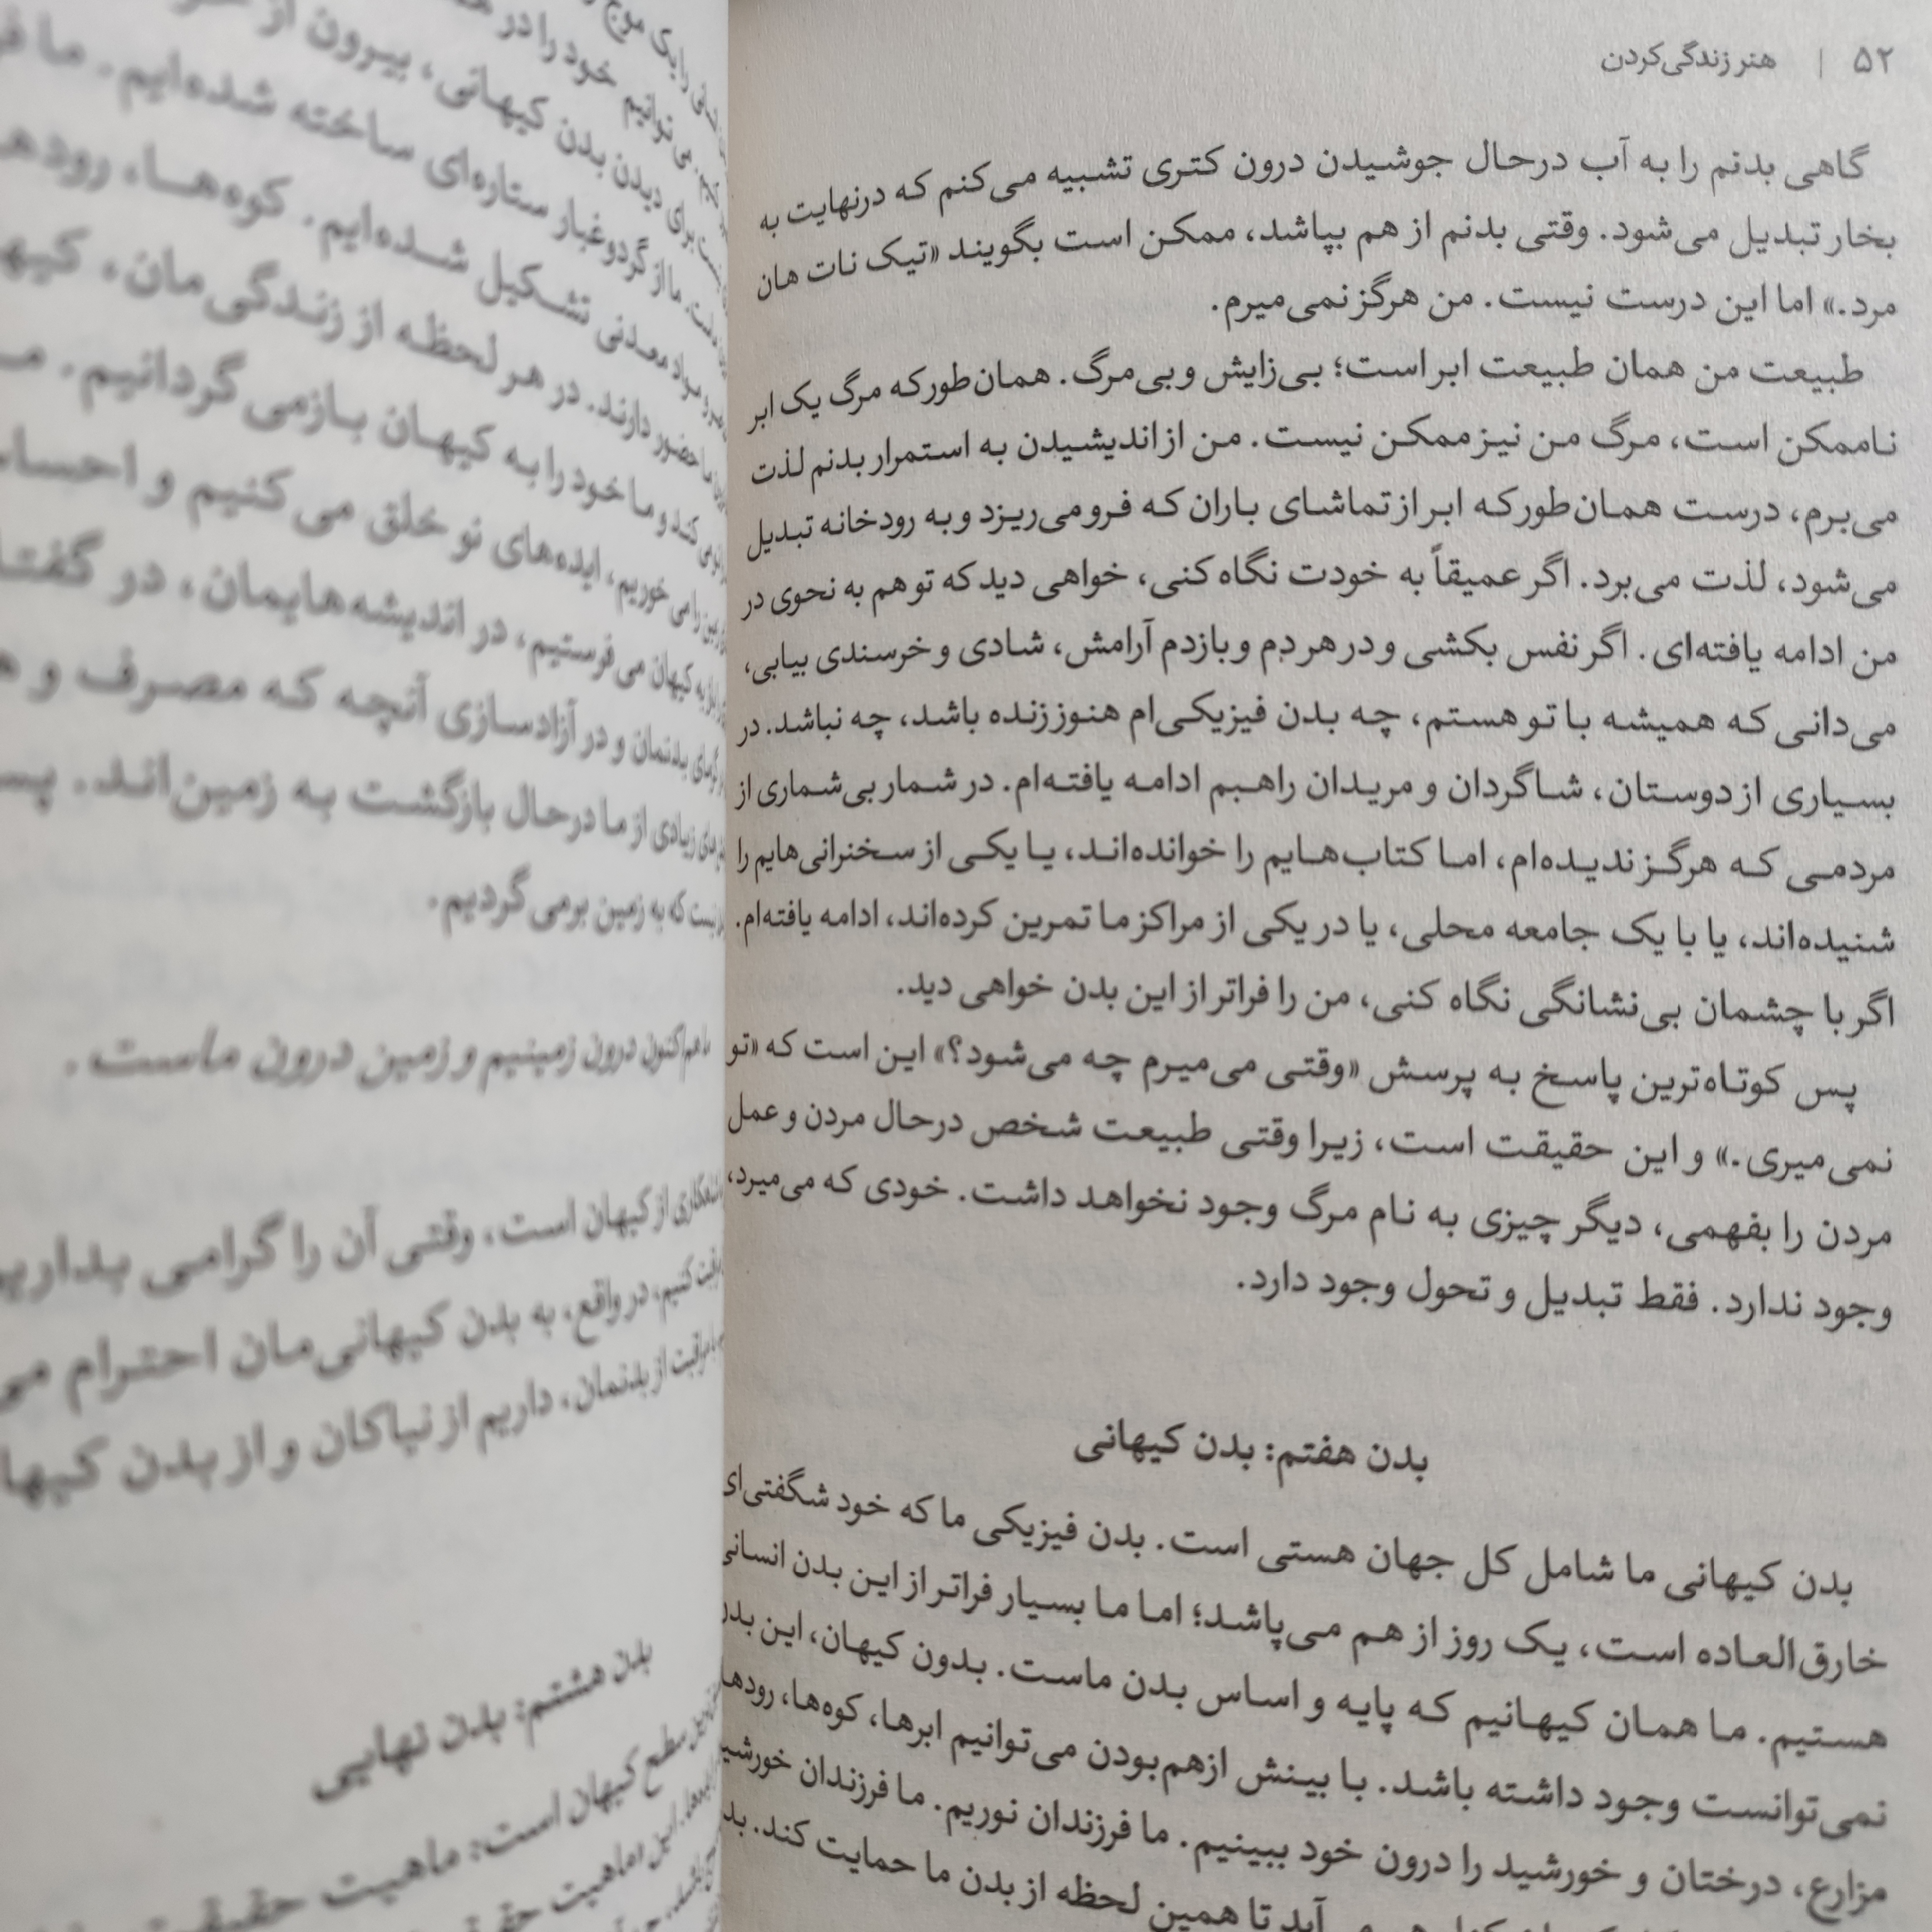 ۵۲ | هنر زندگی‌کردن
گاهی بدنم را به آب درحال جوشیدن درون کتری تشبیه می‌کنم که درنهایت به
بخار تبدیل می‌شود. وقتی بدنم از هم بپاشد، ممکن است بگویند «تیک نات هان
مرد.» اما این درست نیست. من هرگز نمی‌میرم.
طبیعت من همان طبیعت ابر است؛ بی‌زایش و بی‌مرگ. همان‌طورکه مرگ یک ابر
ناممکن است، مرگ من نیز ممکن نیست. من از اندیشیدن به استمرار بدنم لذت
می‌برم، درست همان‌طورکه ابر از تماشای باران که فرومی‌ریزد و به رودخانه تبدیل
می‌شود، لذت می‌برد. اگر عمیقاً به خودت نگاه کنی، خواهی دید که تو هم به نحوی در
من ادامه یافته‌ای. اگر نفس بکشی و در هر دم و بازدم آرامش، شادی و خرسندی بیابی،
می‌دانی که همیشه با تو هستم، چه بدن فیزیکی‌ام هنوز زنده باشد، چه نباشد. در
بسیاری از دوستان، شاگردان و مریدان راهبم ادامه یافته‌ام. در شمار بی‌شماری از
مردمی که هرگز ندیده‌ام، اما کتاب‌هایم را خوانده‌اند، یا یکی از سخنرانی‌هایم را
شنیده‌اند، یا با یک جامعه محلی، یا در یکی از مراکز ما تمرین کرده‌اند، ادامه یافته‌ام.
اگر با چشمان بی‌نشانگی نگاه کنی، من را فراتر از این بدن خواهی دید.
پس کوتاه‌ترین پاسخ به پرسش «وقتی می‌میرم چه می‌شود؟» این است که «تو
نمی‌میری.» و این حقیقت است، زیرا وقتی طبیعت شخص درحال مردن و عمل
مردن را بفهمی، دیگر چیزی به نام مرگ وجود نخواهد داشت. خودی که می‌میرد،
وجود ندارد. فقط تبدیل و تحول وجود دارد.
بدن هفتم: بدن کیهانی
بدن کیهانی ما شامل کل جهان هستی است. بدن فیزیکی ما که خود شگفتی‌ای
خارق‌العاده است، یک روز از هم می‌پاشد؛ اما ما بسیار فراتر از این بدن انسانی
هستیم. ما همان کیهانیم که پایه و اساس بدن ماست. بدون کیهان، این بدن
نمی‌توانست وجود داشته باشد. با بینش ازهم‌بودن می‌توانیم ابرها، کوه‌ها، رودها
مزارع، درختان و خورشید را درون خود ببینیم. ما فرزندان نوریم. ما فرزندان خورشید
آید تا همین لحظه از بدن ما حمایت کند.
بدن کیهانی، بیرون از
گردوغبار ستاره‌ای ساخته شده‌ایم.
معدنی تشکیل شده‌ایم. کوه‌ها،
حضور دارند. در هر لحظه از زندگی‌مان،
ما خود را به کیهان بازمی‌گردانیم.
می‌خوریم، ایده‌های نو خلق می‌کنیم و
به کیهان می‌فرستیم، در اندیشه‌هایمان، در
بدنمان و در آزادسازی آنچه که مصرف و
زیادی از ما درحال بازگشت به زمین‌اند.
که به زمین برمی‌گردیم.
ما هم‌اکنون درون زمینیم و زمین درون ماست.
از کیهان است، وقتی آن را گرامی
کنیم، در واقع، به بدن کیهانی‌مان احترام
از بدنمان، داریم از نیاکان و از بدن
بدن هشتم: بدن نهایی
سطح کیهان است: ماهیت